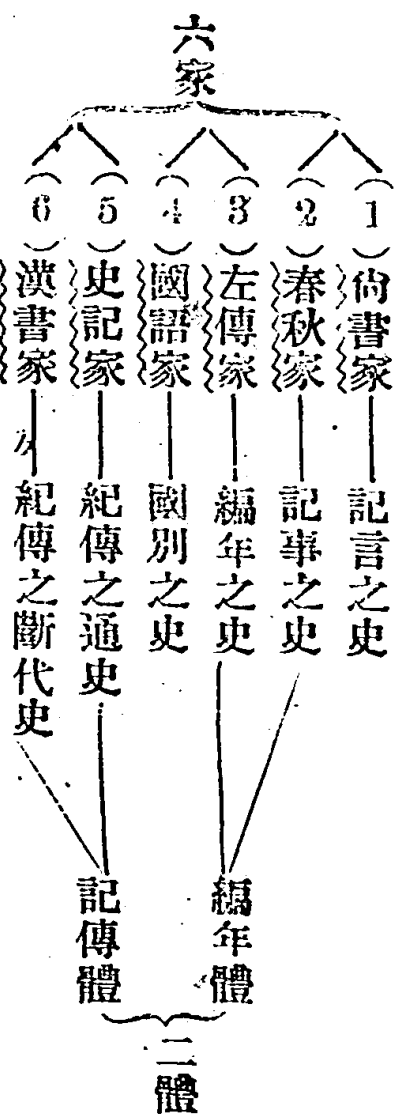 六家
(1)尙書家——記言之史
(2)春秋家——記事之史
(3)左傳家——編年之史
(4)國語家——國別之史
(5)史記家——紀傳之通史
(6)漢書家——紀傳之斷代史
編年體
記傳體
二體